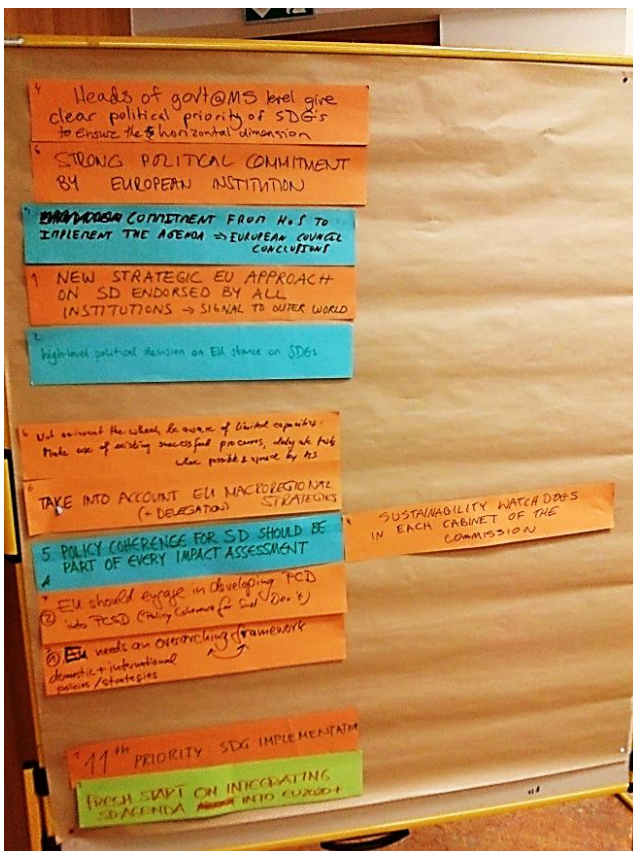 4
Heads of govt@MS level give
clear political priority of SDG's
to ensure the horizontal dimension
6
STRONG POLITICAL COMMITMENT
BY EUROPEAN INSTITUTION
COMMITMENT FROM HoS TO
IMPLEMENT THE AGENDA ⇒ EUROPEAN COUNCIL
CONCLUSIONS
1 NEW STRATEGIC EU APPROACH
ON SD ENDORSED BY ALL
INSTITUTIONS → SIGNAL TO OUTER WORLD
2
high-level political decision on EU stance on SDGs
Not reinvent the wheel, be aware of limited capacities.
Make use of existing successful processes, delegate tasks
where possible & agreed by MS
6
TAKE INTO ACCOUNT EU MACROREGIONAL
STRATEGIES
(+ DELEGATION)
SUSTAINABILITY WATCHDOGS
IN EACH CABINET OF THE
COMMISSION
5 POLICY COHERENCE FOR SD SHOULD BE
PART OF EVERY IMPACT ASSESSMENT
② EU should engage in developing PCD
into PCSD (Policy Coherence for Sust Dev't)
① EU needs an overarching framework
domestic + international
policies/strategies
11th PRIORITY: SDG IMPLEMENTATION
FRESH START ON INTEGRATING
SD AGENDA INTO EU2020+